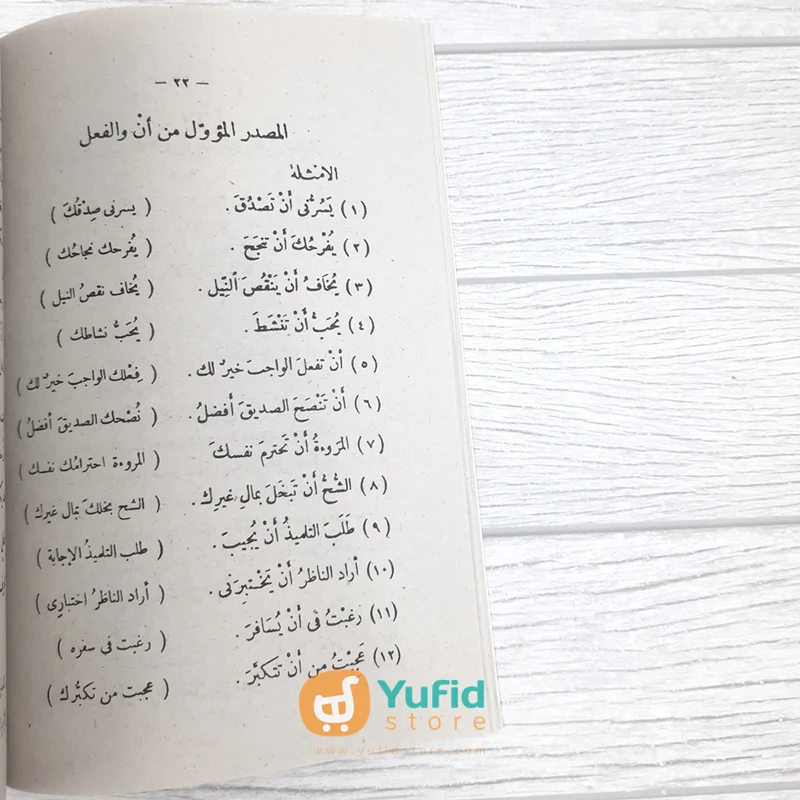 — ٢٢ —
المصدر المؤوّل من أنْ والفعل
الامثلة
(١) يَسُرُّنى أَنْ تَصْدُقَ . ( يسرنى صِدْقُكَ )
(٢) يُفْرِحُكَ أَنْ تنجَحَ . ( يُفرحك نجاحُك )
(٣) يُخَافُ أَنْ يَنْقُصَ ٱلنِّيل . ( يُخاف نقصُ النيل )
(٤) يُحَبُّ أَنْ تَنْشَطَ . ( يُحَبُّ نشاطك )
(٥) أنْ تفعلَ الواجبَ خيرٌ لك . ( فِعْلك الواجبَ خيرٌ لك )
(٦) أَنْ تَنْصَحَ الصديقَ أَفضلُ . ( نُصْحك الصديقَ أفضلُ )
(٧) المَرَوءةُ أَنْ تَحترمَ نفسكَ ( المروءة احترامُك نفسك )
(٨) الشُّحُّ أَنْ تَبخَلَ بمالِ غيرِك . ( الشح بخلكَ بمال غيرك )
(٩) طَلَبَ التلميذُ أَنْ يُجيبَ . ( طلب التلميذُ الإجابة )
(١٠) أراد الناظرُ أَنْ يَخْتبِرَنى . ( أراد الناظرُ اختبارى )
(١١) رَغِبْتُ فى أَنْ يُسَافرَ . ( رغبت فى سفره )
(١٢) عَجِبْتُ مِن أَنْ تتكبَّرَ . ( عجبت من تكبُّرك )
Yufid
store
www.yufidstore.com